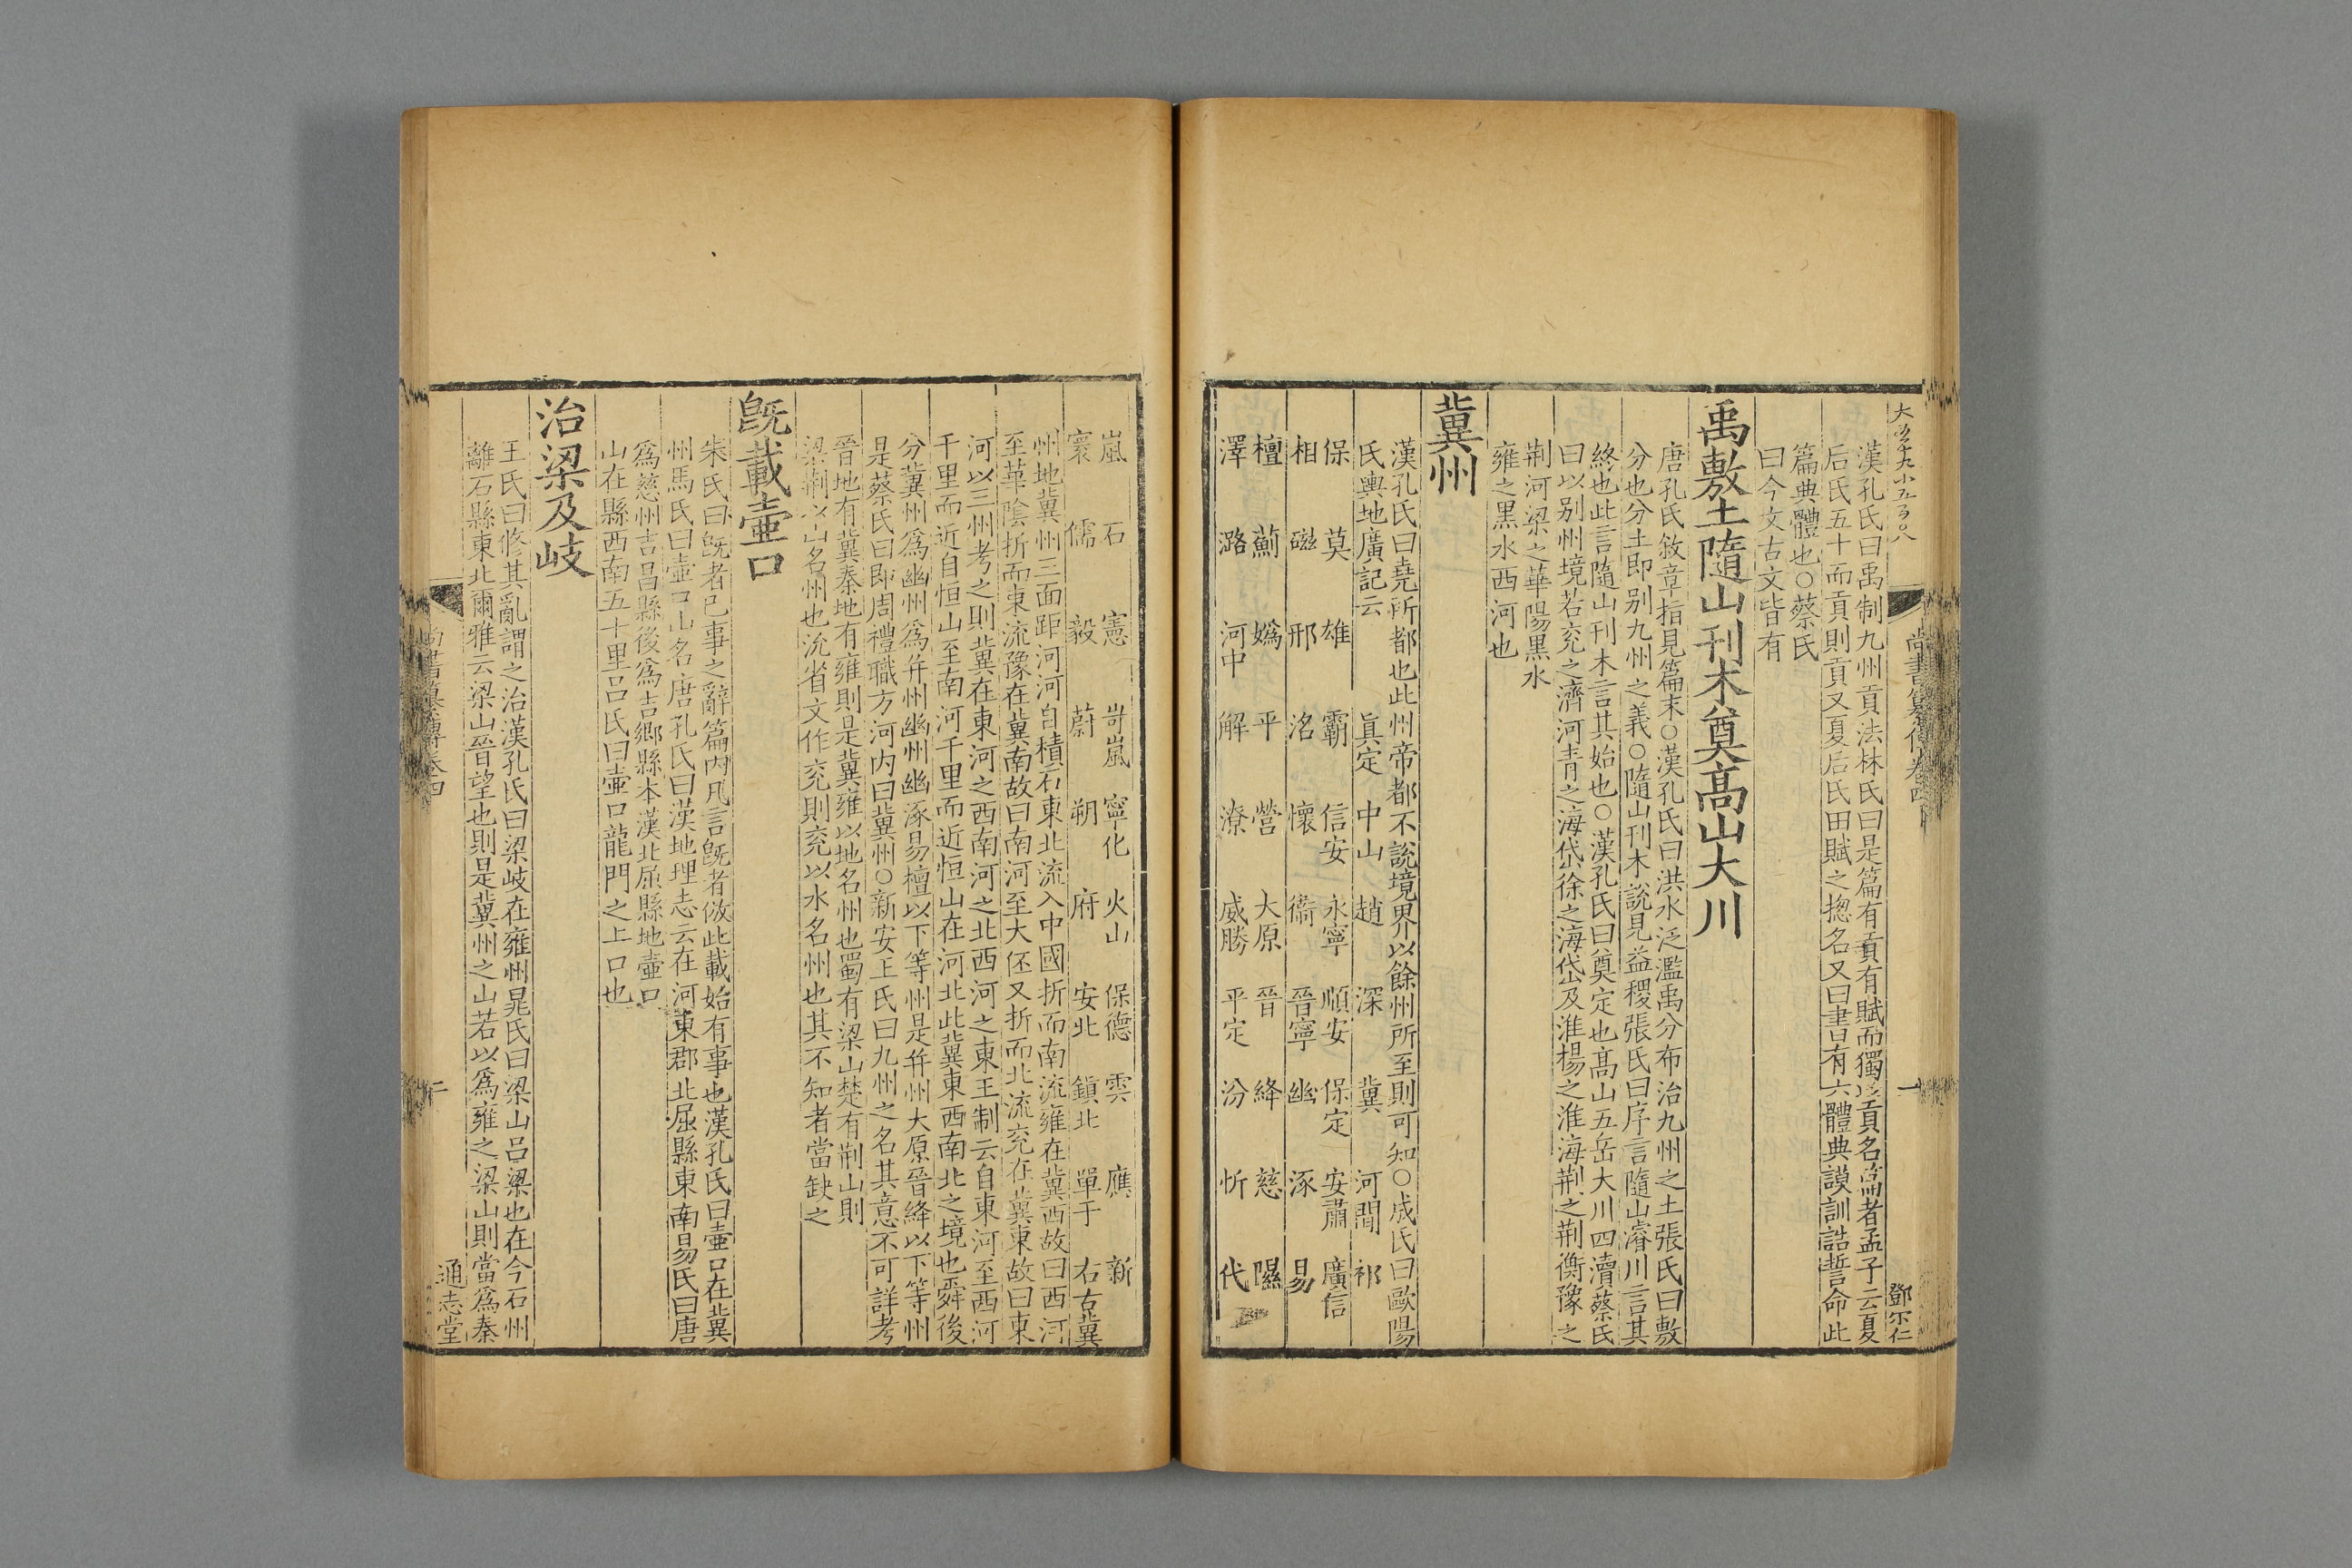 尚書纂傳卷四
一
鄧尔仁
漢孔氏曰禹制九州貢法林氏曰是篇有貢有賦而獨以貢名篇者孟子云夏
后氏五十而貢則貢又夏后氏田賦之揔名又曰書有六體典謨訓誥誓命此
篇典體也○蔡氏
曰今文古文皆有
禹敷土隨山刊木奠高山大川
唐孔氏敘章指見篇末○漢孔氏曰洪水泛濫禹分布治九州之土張氏曰敷
分也分土即别九州之義○隨山刊木說見益稷張氏曰序言隨山濬川言其
終也此言隨山刊木言其始也○漢孔氏曰奠定也高山五岳大川四瀆蔡氏
曰以别州境若兖之濟河青之海岱徐之海岱及淮楊之淮海荆之荆衡豫之
荆河梁之華陽黑水
雍之黑水西河也
冀州
漢孔氏曰堯所都也此州帝都不說境界以餘州所至則可知○成氏曰歐陽
氏輿地廣記云 眞定 中山 趙 深 冀 河間 祁
保 莫 雄 霸 信安 永寧 順安 保定 安肅 廣信
相 磁 邢 洺 懷 衞 晉寧 幽 涿 易
檀 薊 嬀 平 營 大原 晉 絳 慈 隰
澤 潞 河中 解 潦 威勝 平定 汾 忻 代
嵐 石 憲 岢嵐 寧化 火山 保德 雲 應 新
寰 儒 毅 蔚 朔 府 安北 鎮北 單于 右古冀
州地冀州三面距河河自積石東北流入中國折而南流雍在冀西故曰西河
至華陰折而東流豫在冀南故曰南河至大伾又折而北流兖在冀東故曰東
河以三州考之則冀在東河之西南河之北西河之東王制云自東河至西河
千里而近自恒山至南河千里而近恒山在河北此冀東西南北之境也舜後
分冀州爲幽州爲并州幽州幽涿易檀以下等州是并州大原晉絳以下等州
是蔡氏曰即周禮職方河内曰冀州○新安王氏曰九州之名其意不可詳考
晉地有冀秦地有雍則是冀雍以地名州也蜀有梁山楚有荆山則
梁荆以山名州也沇省文作兖則兖以水名州也其不知者當缺之
旣載壷口
朱氏曰旣者已事之辭篇内凡言旣者倣此載始有事也漢孔氏曰壷口在冀
州馬氏曰壷口山名唐孔氏曰漢地理志云在河東郡北屈縣東南易氏曰唐
爲慈州吉昌縣後爲吉鄉縣本漢北屈縣地壷口
山在縣西南五十里呂氏曰壷口龍門之上口也
治梁及岐
王氏曰修其亂謂之治漢孔氏曰梁岐在雍州晁氏曰梁山呂梁也在今石州
離石縣東北爾雅云梁山晉望也則是冀州之山若以爲雍之梁山則當爲秦
尚書纂傳卷四
二
通志堂